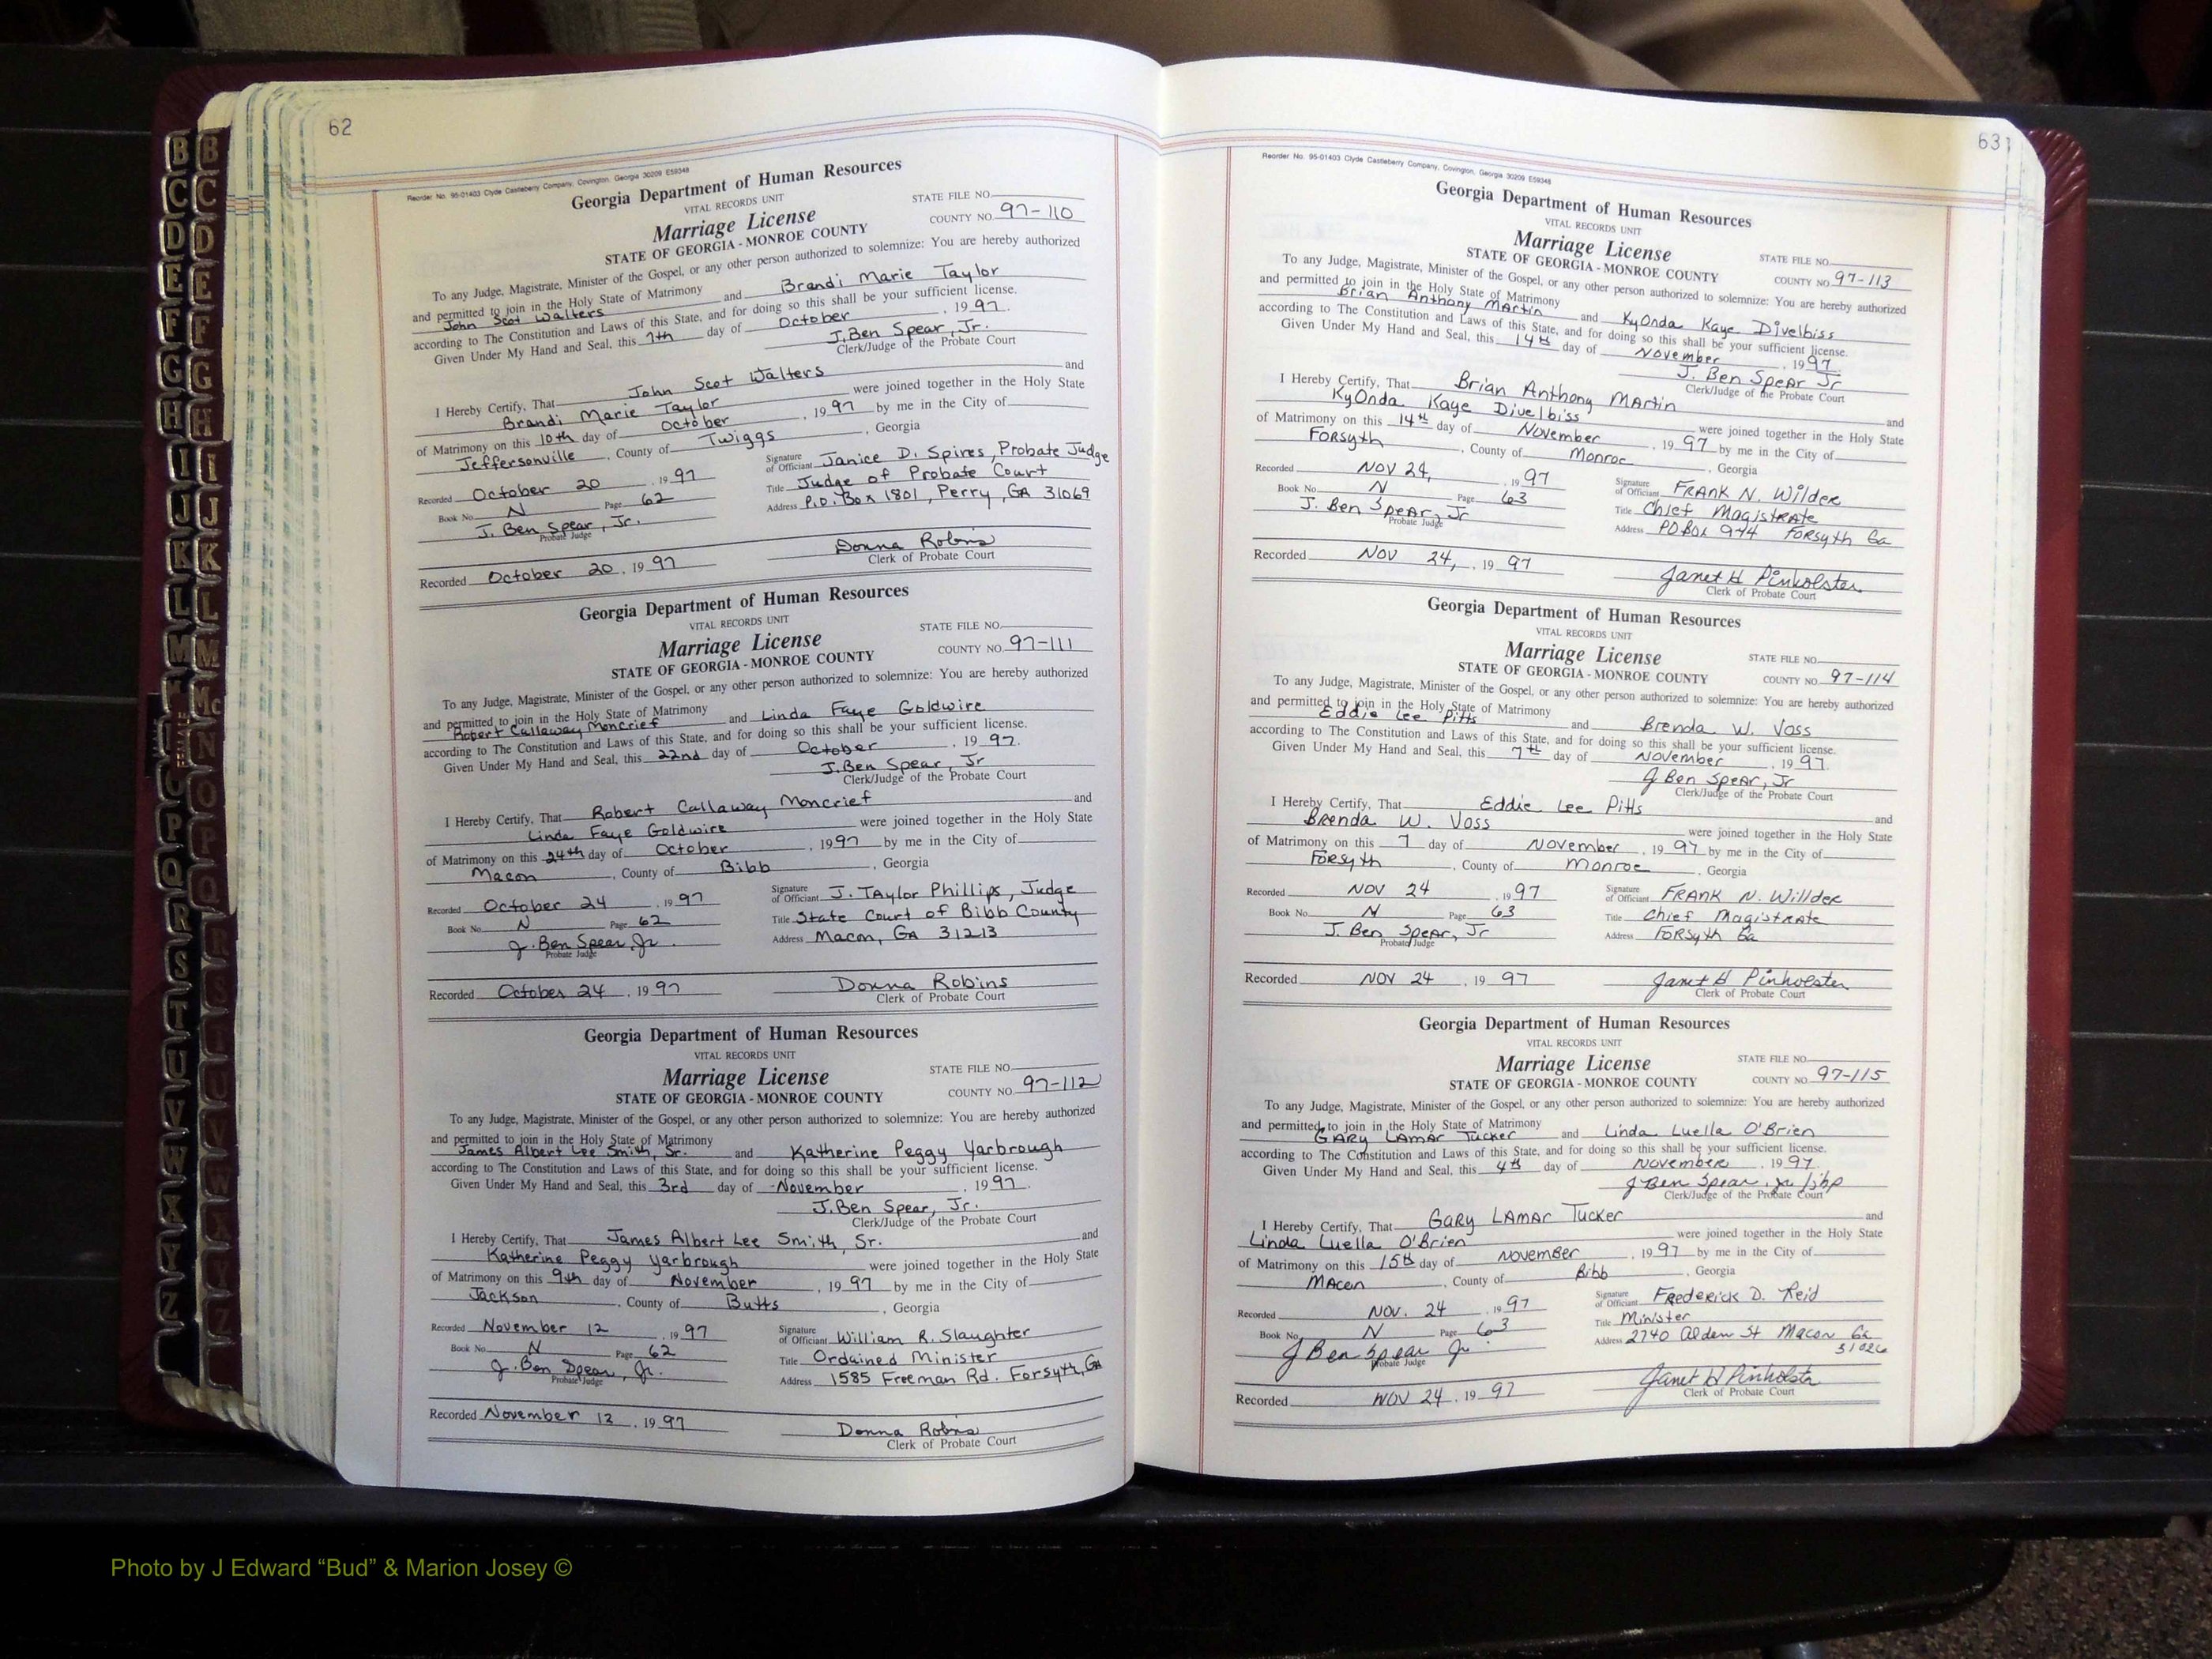 62
Reorder No. 95-01403 Clyde Castleberry Company, Covington, Georgia 30209 E59348
Georgia Department of Human Resources
VITAL RECORDS UNIT
STATE FILE NO.
Marriage License
COUNTY NO. 97-110
STATE OF GEORGIA - MONROE COUNTY
To any Judge, Magistrate, Minister of the Gospel, or any other person authorized to solemnize: You are hereby authorized
and permitted to join in the Holy State of Matrimony
John Scot Walters and Brandi Marie Taylor
according to The Constitution and Laws of this State, and for doing so this shall be your sufficient license.
Given Under My Hand and Seal, this 7th day of October, 1997.
J. Ben Spear, Jr.
Clerk/Judge of the Probate Court
I Hereby Certify, That John Scot Walters and
Brandi Marie Taylor were joined together in the Holy State
of Matrimony on this 10th day of October, 1997 by me in the City of
Jeffersonville, County of Twiggs, Georgia
Recorded October 20, 1997
Signature of Officiant Janice D. Spires, Probate Judge
Book No. N Page 62
Title Judge of Probate Court
J. Ben Spear, Jr.
Probate Judge
Address P.O. Box 1801, Perry, GA 31069
Recorded October 20, 1997
Donna Robins
Clerk of Probate Court
Georgia Department of Human Resources
VITAL RECORDS UNIT
STATE FILE NO.
Marriage License
COUNTY NO. 97-111
STATE OF GEORGIA - MONROE COUNTY
To any Judge, Magistrate, Minister of the Gospel, or any other person authorized to solemnize: You are hereby authorized
and permitted to join in the Holy State of Matrimony
Robert Callaway Moncrief and Linda Faye Goldwire
according to The Constitution and Laws of this State, and for doing so this shall be your sufficient license.
Given Under My Hand and Seal, this 22nd day of October, 1997.
J. Ben Spear, Jr
Clerk/Judge of the Probate Court
I Hereby Certify, That Robert Callaway Moncrief and
Linda Faye Goldwire were joined together in the Holy State
of Matrimony on this 24th day of October, 1997 by me in the City of
Macon, County of Bibb, Georgia
Recorded October 24, 1997
Signature of Officiant J. Taylor Phillips, Judge
Book No. N Page 62
Title State Court of Bibb County
J. Ben Spear, Jr.
Probate Judge
Address Macon, GA 31213
Recorded October 24, 1997
Donna Robins
Clerk of Probate Court
Georgia Department of Human Resources
VITAL RECORDS UNIT
STATE FILE NO.
Marriage License
COUNTY NO. 97-112
STATE OF GEORGIA - MONROE COUNTY
To any Judge, Magistrate, Minister of the Gospel, or any other person authorized to solemnize: You are hereby authorized
and permitted to join in the Holy State of Matrimony
James Albert Lee Smith, Sr. and Katherine Peggy Yarbrough
according to The Constitution and Laws of this State, and for doing so this shall be your sufficient license.
Given Under My Hand and Seal, this 3rd day of November, 1997.
J. Ben Spear, Jr.
Clerk/Judge of the Probate Court
I Hereby Certify, That James Albert Lee Smith, Sr. and
Katherine Peggy Yarbrough were joined together in the Holy State
of Matrimony on this 9th day of November, 1997 by me in the City of
Jackson, County of Butts, Georgia
Recorded November 12, 1997
Signature of Officiant William R. Slaughter
Book No. N Page 62
Title Ordained Minister
J. Ben Spear, Jr.
Probate Judge
Address 1585 Freeman Rd. Forsyth, GA
Recorded November 12, 1997
Donna Robins
Clerk of Probate Court
63
Reorder No. 95-01403 Clyde Castleberry Company, Covington, Georgia 30209 E59348
Georgia Department of Human Resources
VITAL RECORDS UNIT
Marriage License
STATE FILE NO.
STATE OF GEORGIA - MONROE COUNTY
COUNTY NO. 97-113
To any Judge, Magistrate, Minister of the Gospel, or any other person authorized to solemnize: You are hereby authorized
and permitted to join in the Holy State of Matrimony
Brian Anthony Martin and KyOnda Kaye Divelbiss
according to The Constitution and Laws of this State, and for doing so this shall be your sufficient license.
Given Under My Hand and Seal, this 14th day of November, 1997.
J. Ben Spear Jr
Clerk/Judge of the Probate Court
I Hereby Certify, That Brian Anthony Martin and
KyOnda Kaye Divelbiss were joined together in the Holy State
of Matrimony on this 14th day of November, 1997 by me in the City of
Forsyth, County of Monroe, Georgia
Recorded Nov 24, 1997
Signature of Officiant Frank N. Wilder
Book No. N Page 63
Title Chief Magistrate
J. Ben Spear, Jr
Probate Judge
Address PO Box 974 Forsyth Ga
Recorded Nov 24, 1997
Janet H Pinkolster
Clerk of Probate Court
Georgia Department of Human Resources
VITAL RECORDS UNIT
Marriage License
STATE FILE NO.
STATE OF GEORGIA - MONROE COUNTY
COUNTY NO. 97-114
To any Judge, Magistrate, Minister of the Gospel, or any other person authorized to solemnize: You are hereby authorized
and permitted to join in the Holy State of Matrimony
Eddie Lee Pitts and Brenda W. Voss
according to The Constitution and Laws of this State, and for doing so this shall be your sufficient license.
Given Under My Hand and Seal, this 7th day of November, 1997.
J Ben Spear, Jr
Clerk/Judge of the Probate Court
I Hereby Certify, That Eddie Lee Pitts and
Brenda W. Voss were joined together in the Holy State
of Matrimony on this 7 day of November, 1997 by me in the City of
Forsyth, County of Monroe, Georgia
Recorded Nov 24, 1997
Signature of Officiant Frank N. Willder
Book No. N Page 63
Title Chief Magistrate
J. Ben Spear, Jr
Probate Judge
Address Forsyth Ga
Recorded Nov 24, 1997
Janet H Pinkolster
Clerk of Probate Court
Georgia Department of Human Resources
VITAL RECORDS UNIT
Marriage License
STATE FILE NO.
STATE OF GEORGIA - MONROE COUNTY
COUNTY NO. 97-115
To any Judge, Magistrate, Minister of the Gospel, or any other person authorized to solemnize: You are hereby authorized
and permitted to join in the Holy State of Matrimony
Gary Lamar Tucker and Linda Luella O'Brien
according to The Constitution and Laws of this State, and for doing so this shall be your sufficient license.
Given Under My Hand and Seal, this 4th day of November, 1997.
J Ben Spear, Jr/jhp
Clerk/Judge of the Probate Court
I Hereby Certify, That Gary Lamar Tucker and
Linda Luella O'Brien were joined together in the Holy State
of Matrimony on this 15th day of November, 1997 by me in the City of
Macon, County of Bibb, Georgia
Recorded Nov. 24, 1997
Signature of Officiant Frederick D. Reid
Book No. N Page 63
Title Minister
J Ben Spear Jr
Probate Judge
Address 2740 Alden St Macon Ga
Recorded Nov 24, 1997
Janet H Pinkolster
Clerk of Probate Court
B C D E F G H I J K L M
B C D E F G H I J K L M Mc N O P Q
P Q R S T U V W X Y Z
Photo by J Edward “Bud” & Marion Josey ©